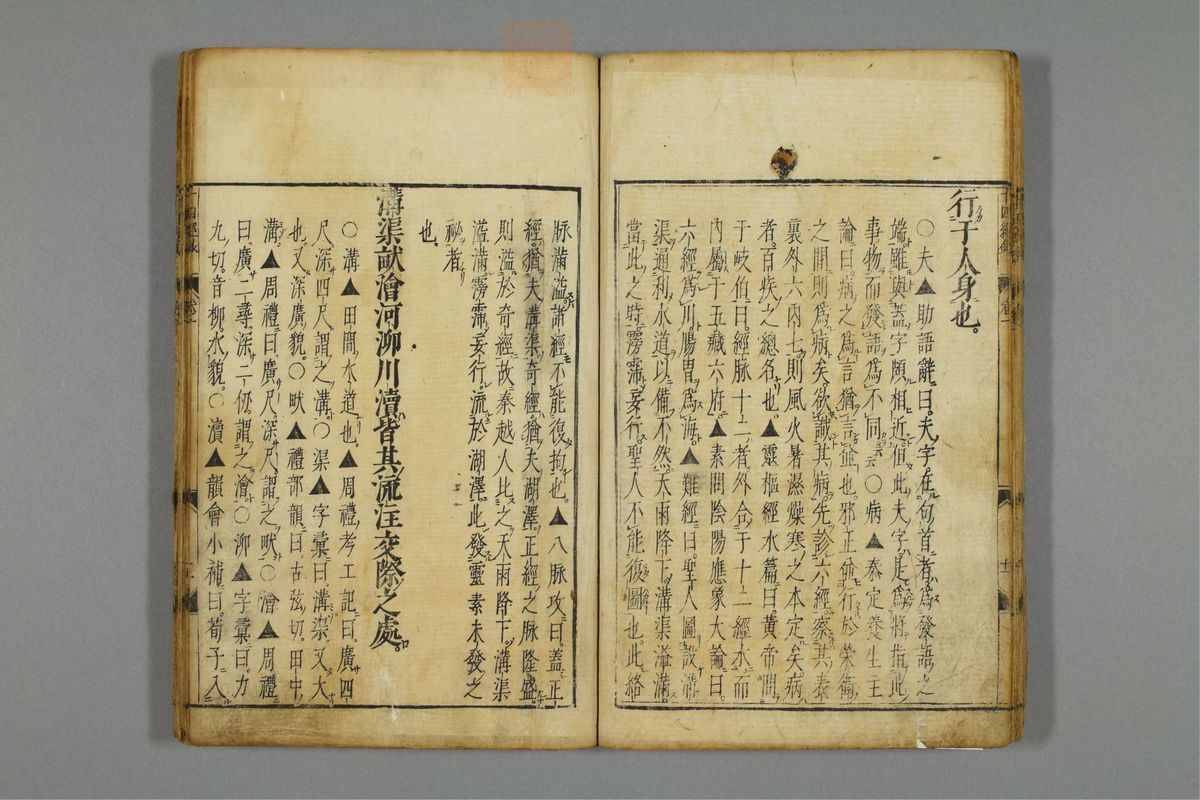 行于人身也。
○夫▲助語辭曰。夫字在句首者。為發語之
端。雖與蓋字頗相近。但此夫字。是為將指此
事物而發語。為不同。云云○病▲泰定養生主
論曰。病之為言猶言並也。邪正並行於榮衛
之間則為病矣。欲識其病。先診六經。察其表
裏外六內七。則風火暑濕燥寒之本定矣。病
者。百疾之總名也。▲靈樞經水篇曰。黃帝問
于岐伯曰。經脉十二者。外合于十二經水。而
內屬于五藏六府。▲素問陰陽應象大論曰。
六經為川。腸胃為海。▲難經曰。聖人圖設溝
渠通利水道以備不然。天雨降下。溝渠溢滿。
當此之時。霶霈妄行。聖人不能復圖也。此絡
脉滿溢諸經不能復拘也。▲八脉攻曰。蓋正
經猶夫溝渠奇經猶夫湖澤。正經之脉隆盛。
則溢於奇經。故秦越人比之天雨降下。溝渠
溢滿。霶霈妄行。流於湖澤。此發靈素未發之
祕者
也。
溝渠畎澮河泖川瀆皆其流注交際之處。
○溝▲田間水道也。▲周禮考工記曰。廣四
尺深四尺。謂之溝。○渠▲字彙曰。溝渠。又大
也。又深廣貌。○畎▲禮部韻曰。古泫切。田中
溝。▲周禮曰。廣尺。深尺。謂之畎。○澮▲周禮
曰。廣二尋。深二仞。謂之澮。○泖▲字彙曰。力
九切。音柳。水貌。○瀆▲韻會小補曰。荀子入